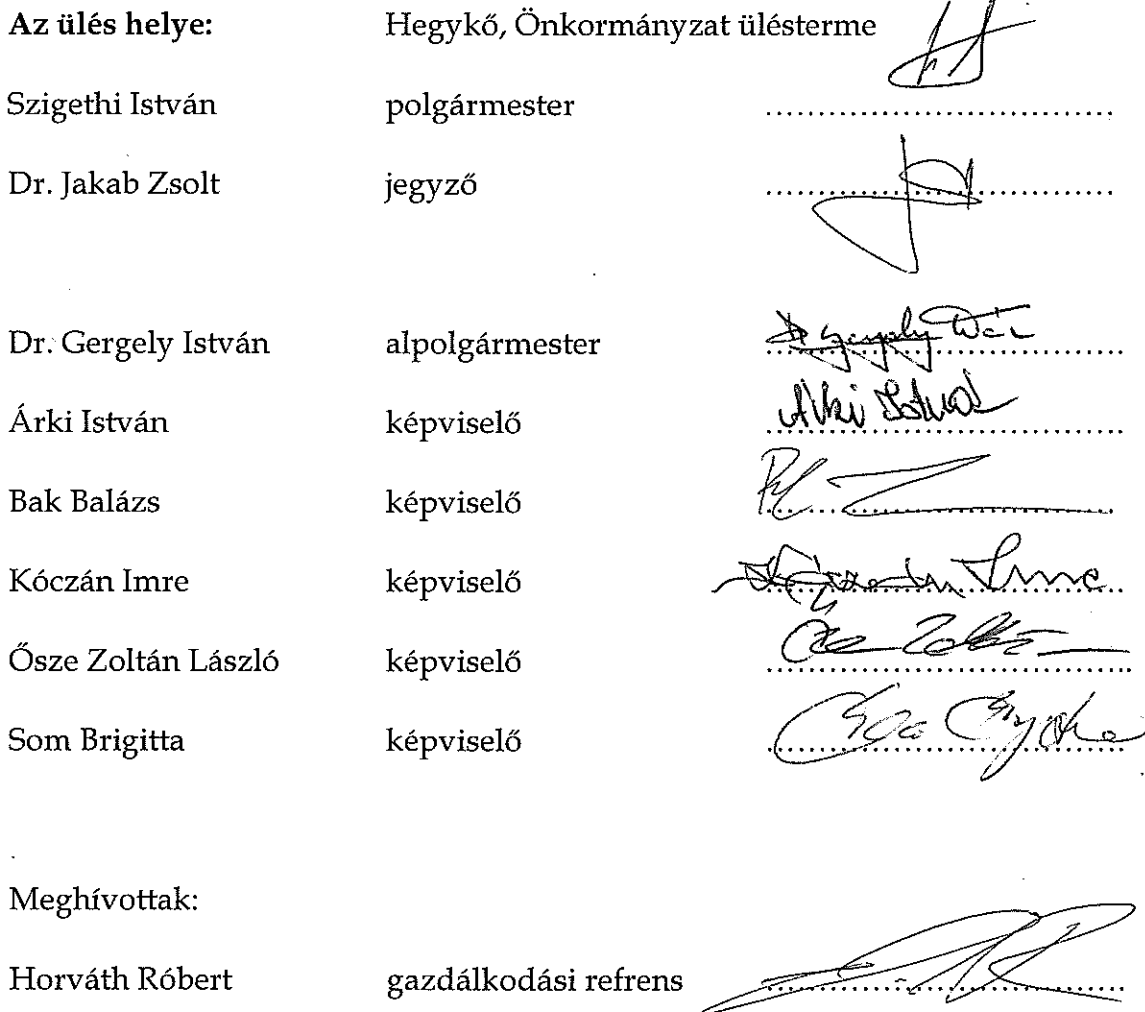 Az ülés helye: Hegykő, Önkormányzat ülésterme
Szigethi István polgármester ..............................
Dr. Jakab Zsolt jegyző ..............................
Dr. Gergely István alpolgármester ..............................
Árki István képviselő ..............................
Bak Balázs képviselő ..............................
Kóczán Imre képviselő ..............................
Ősze Zoltán László képviselő ..............................
Som Brigitta képviselő ..............................
Meghívottak:
Horváth Róbert gazdálkodási refrens ..............................